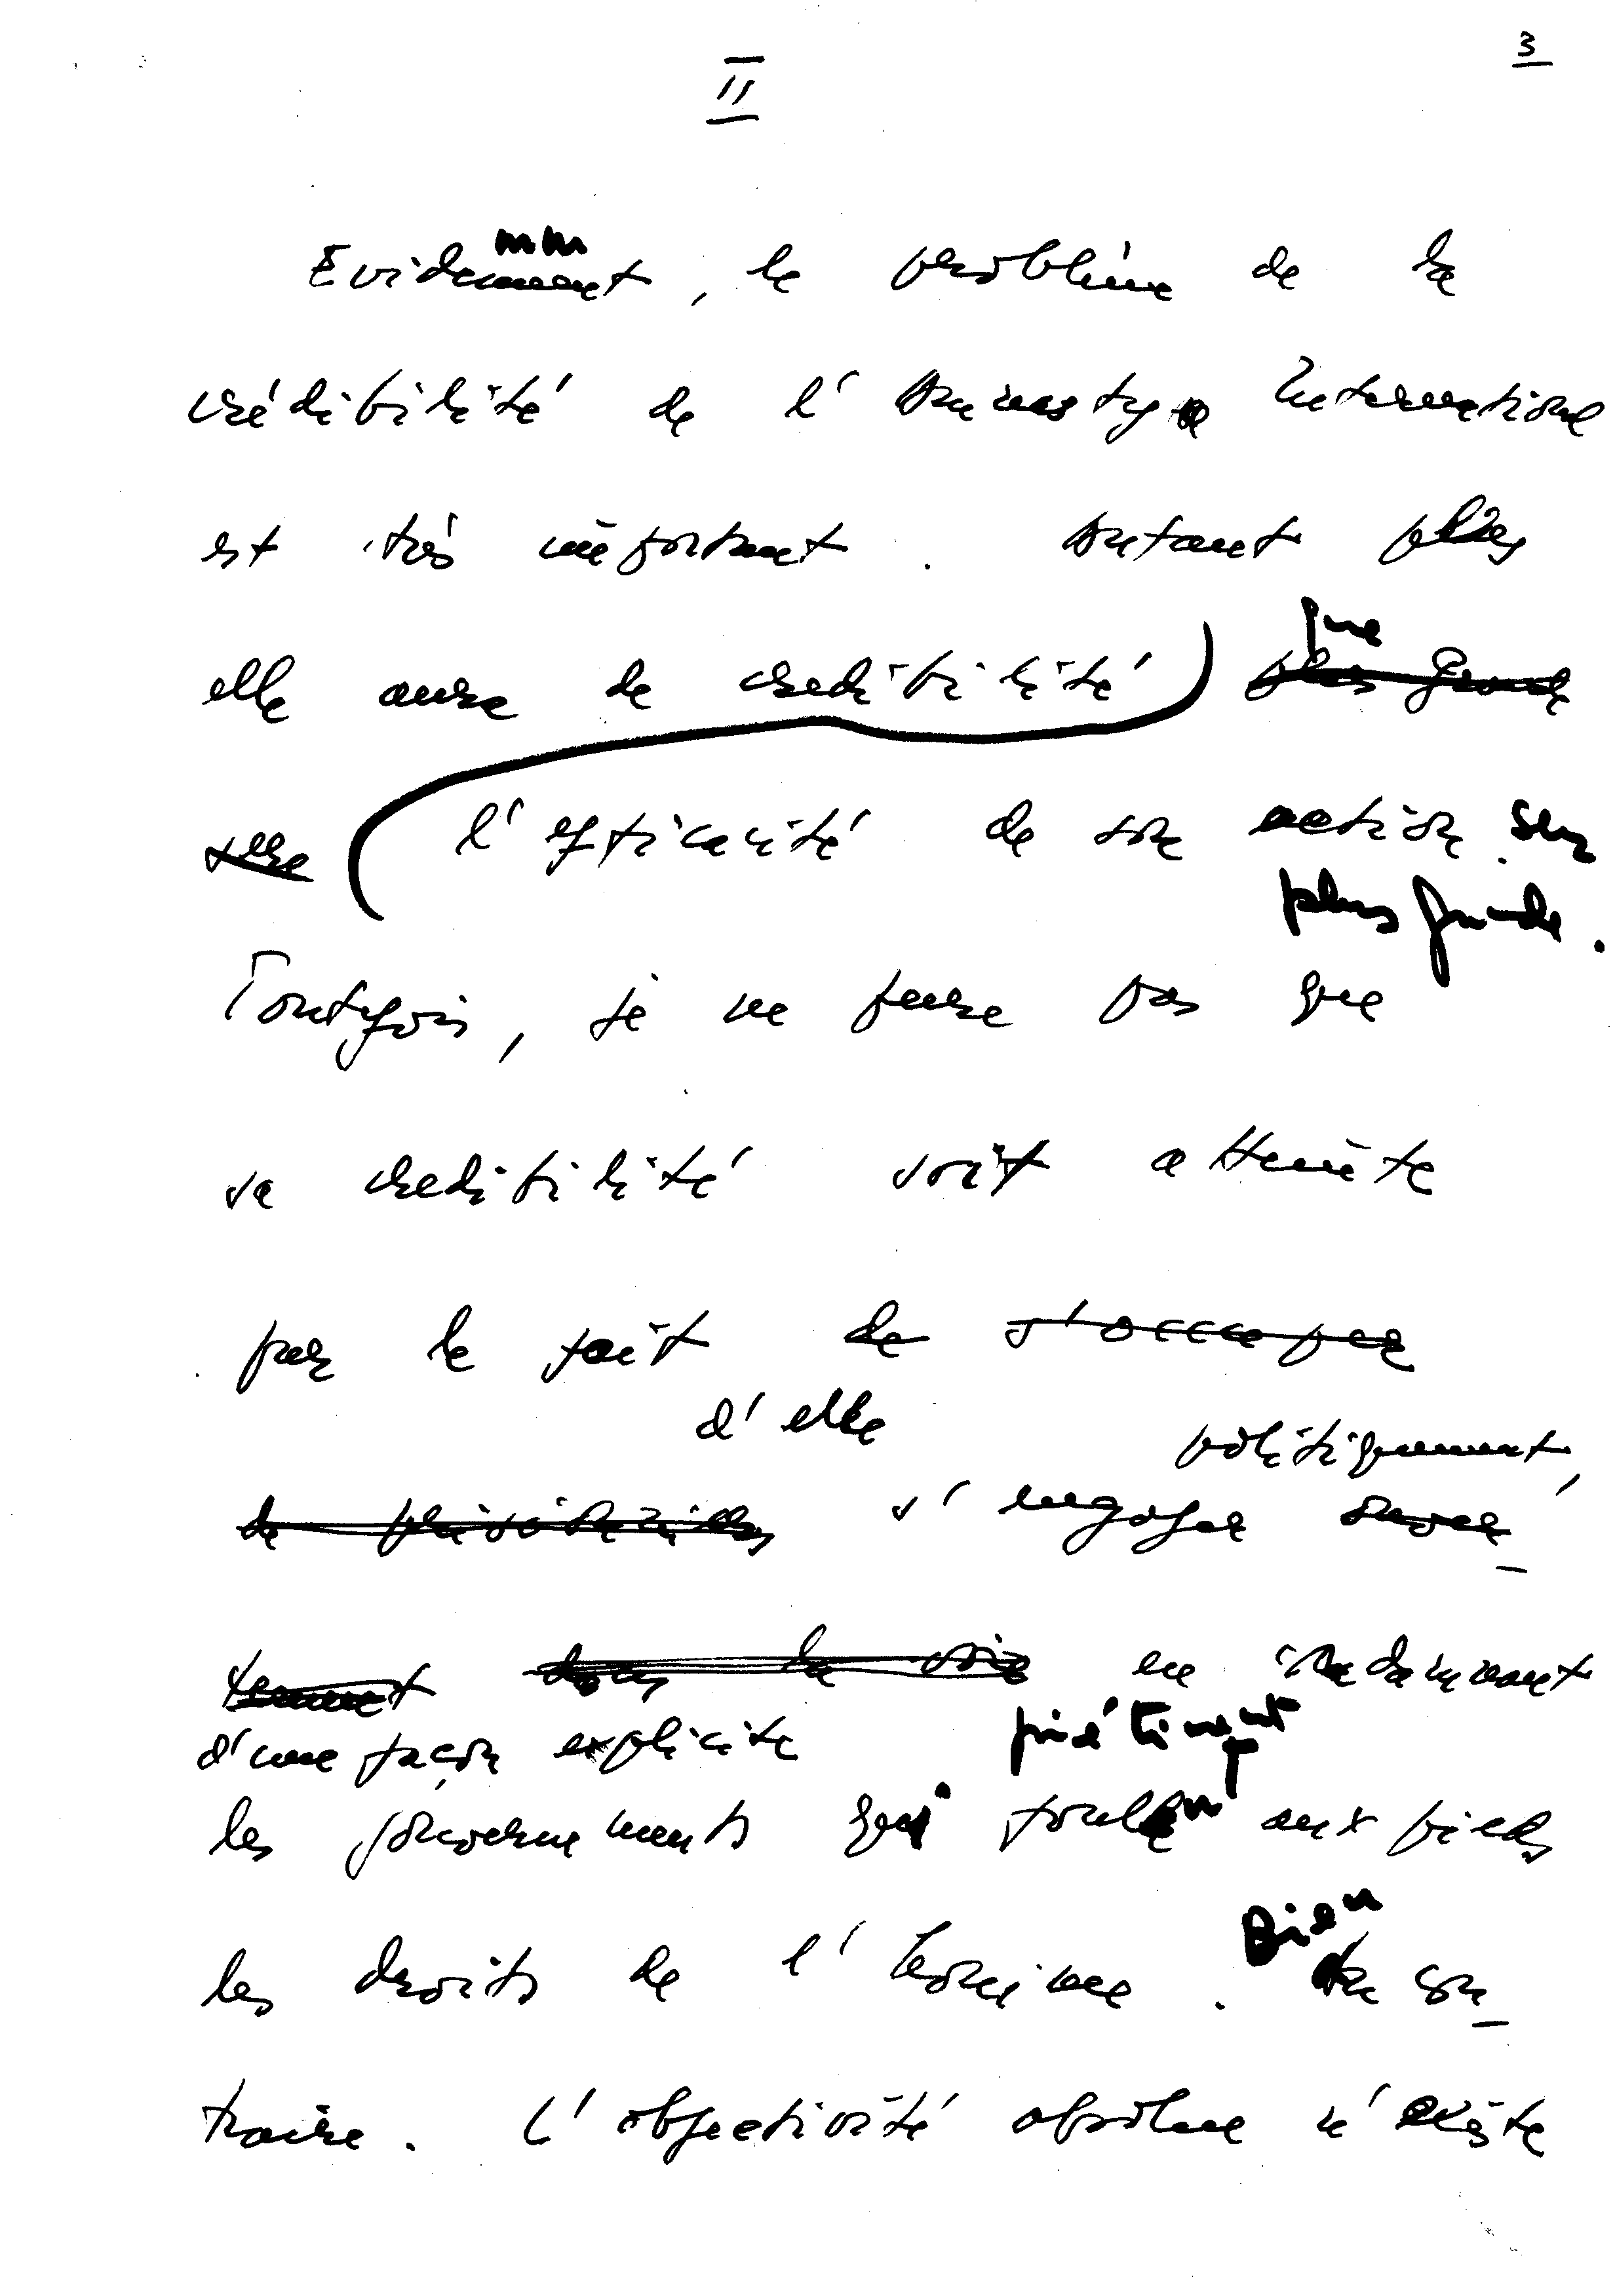 3
II
mm
Evidemment, le problème de la
crédibilité de l'Amnesty International
est très important. Autant plus
que
elle aura de credibilité plus grande
sera l'efficacité de son action sera
plus grande.
Toutefois, je ne pense pas que
sa credibilité soit atteinte
par le fait de s'occuper
d'elle politiquement,
de s'engager ouver-
tement dans la voie en condamnant
d'une façon explicite piétinent
les gouvernements qui foulent aux pieds
les droits de l'homme. Bien
au con-
traire. L'objectivité absolue n'existe